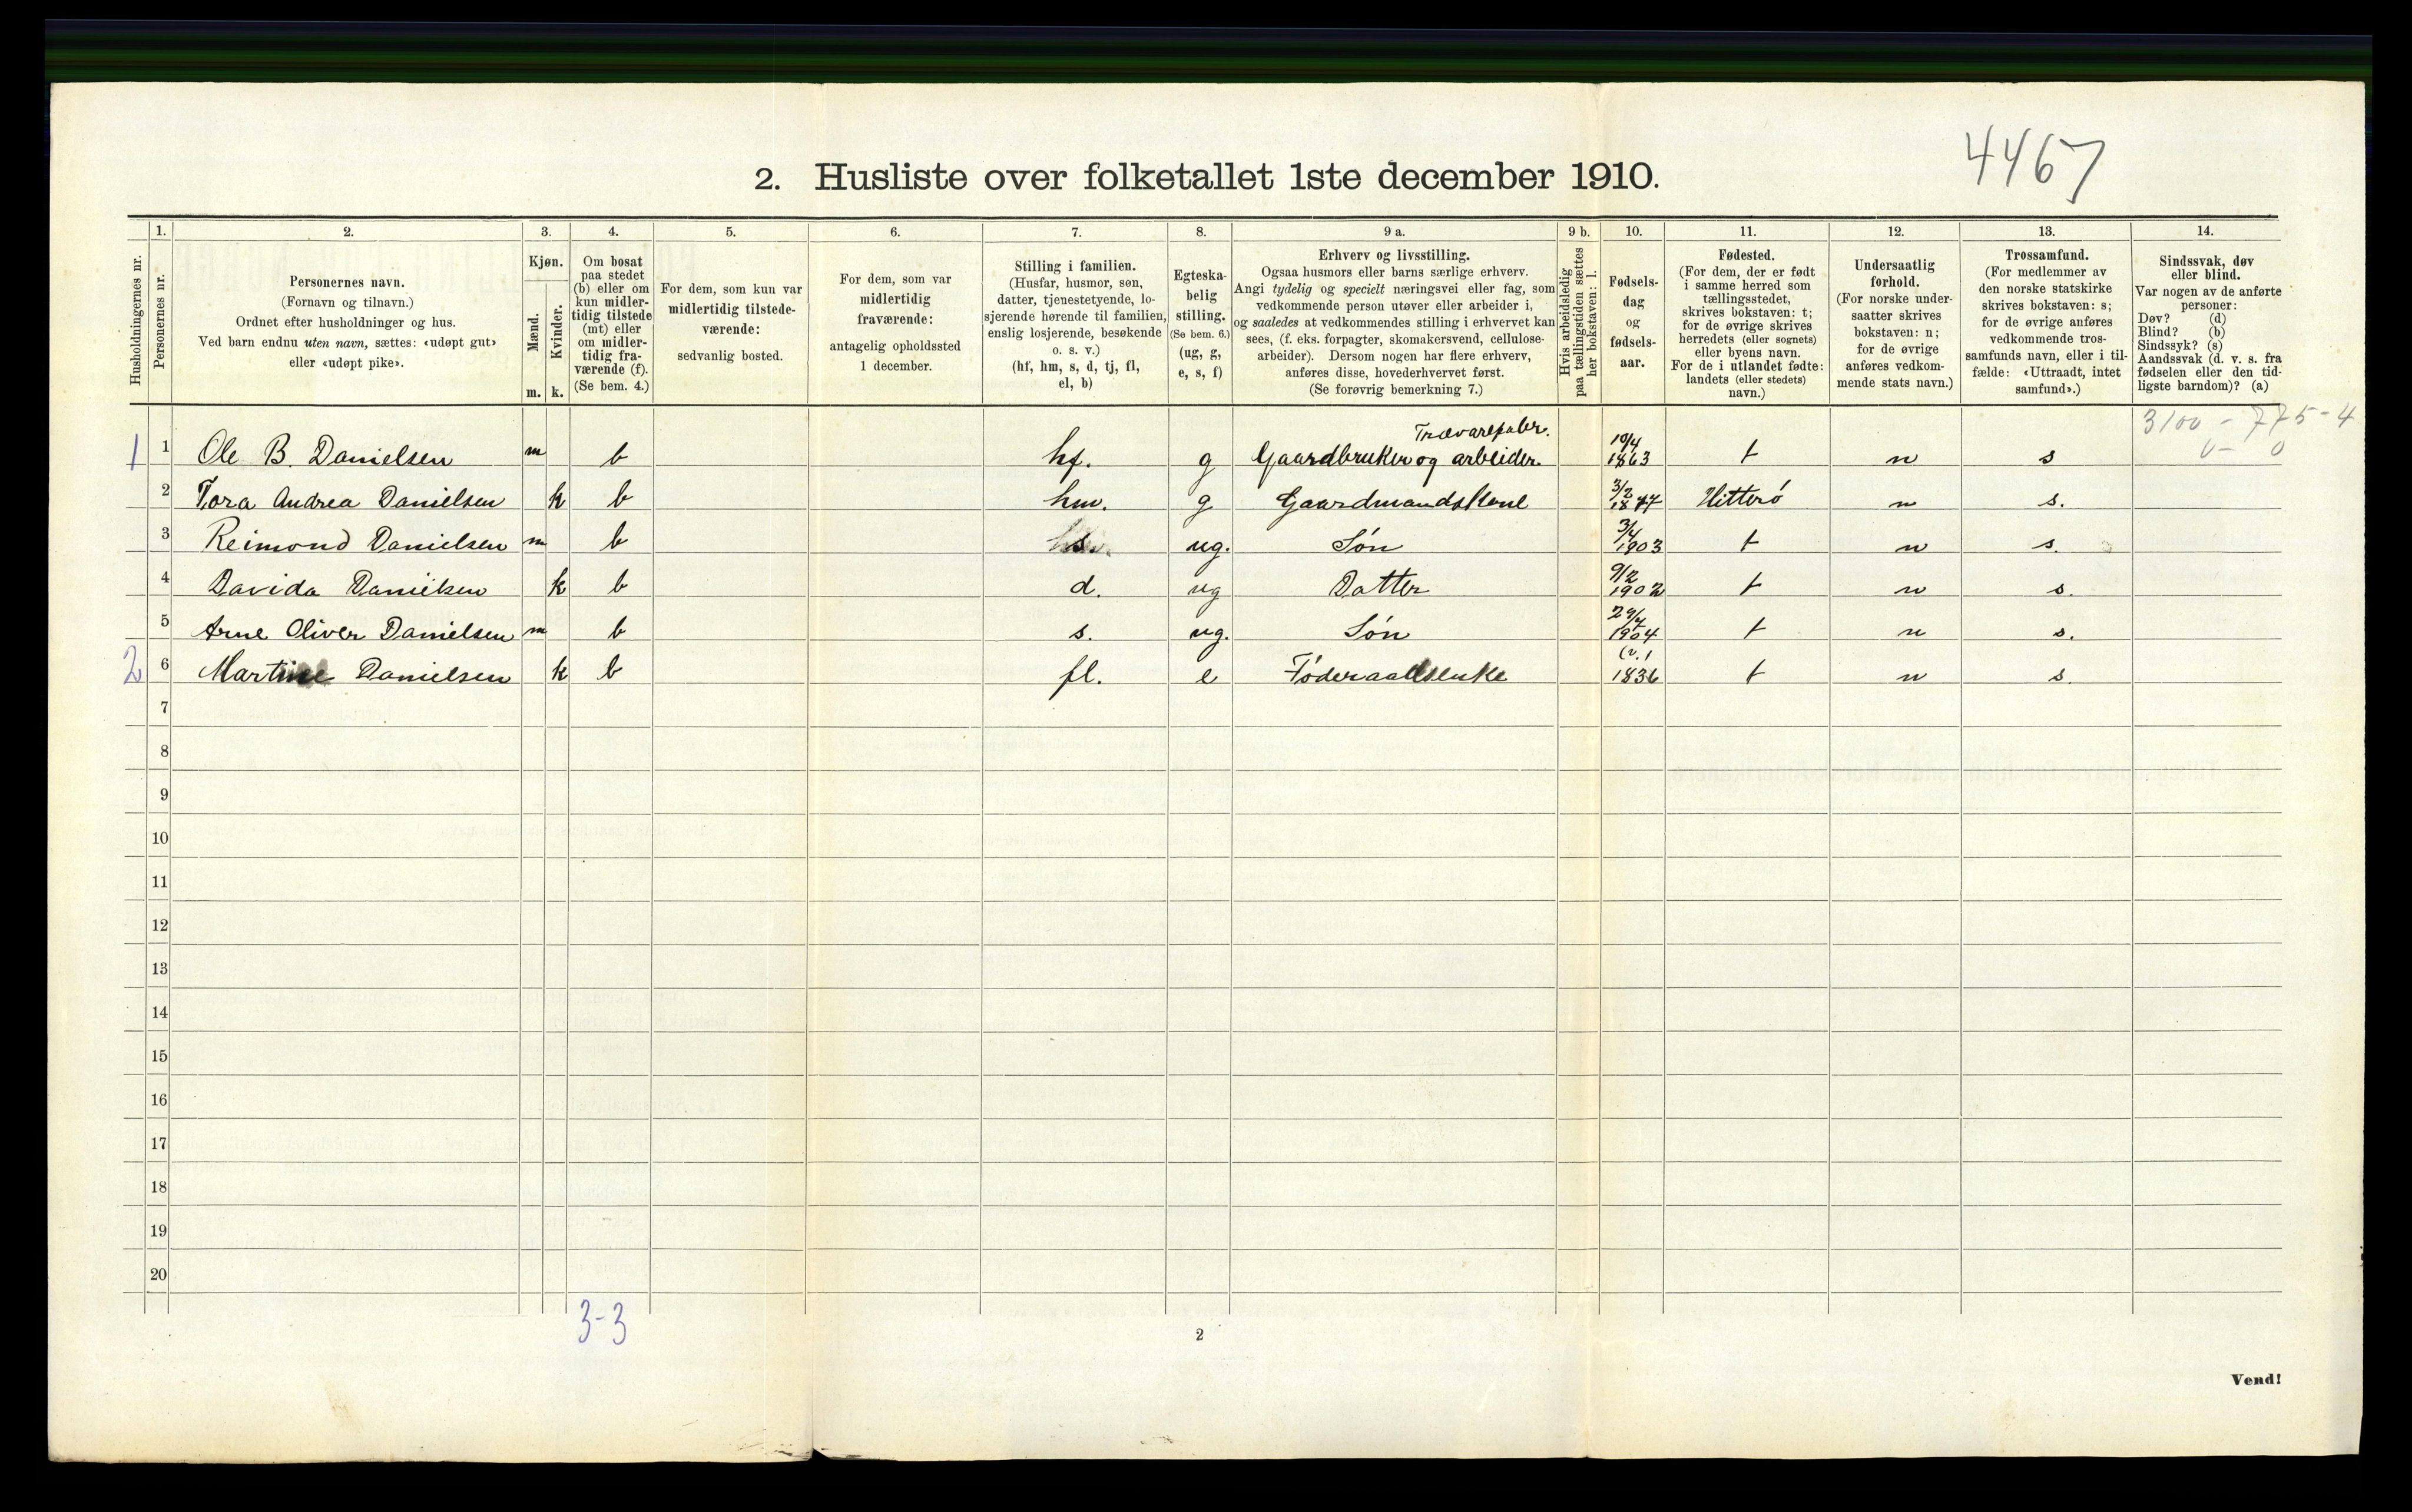 4467
2. Husliste over folketallet 1ste december 1910.
Husholdningernes nr.
1.
Personernes nr.
2.
Personernes navn.
(Fornavn og tilnavn.)
Ordnet efter husholdninger og hus.
Ved barn endnu uten navn, sættes: «udøpt gut»
eller «udøpt pike».
3.
Kjøn.
Mænd.
Kvinder.
m. k.
4.
Om bosat
paa stedet
(b) eller om
kun midler-
tidig tilstede
(mt) eller
om midler-
tidig fra-
værende (f).
(Se bem. 4.)
5.
For dem, som kun var
midlertidig tilstede-
værende:
sedvanlig bosted.
6.
For dem, som var
midlertidig
fraværende:
antagelig opholdssted
1 december.
7.
Stilling i familien.
(Husfar, husmor, søn,
datter, tjenestetyende, lo-
sjerende hørende til familien,
enslig losjerende, besøkende
o. s. v.)
(hf, hm, s, d, tj, fl,
el, b)
8.
Egteska-
belig
stilling.
(Se bem. 6.)
(ug, g,
e, s, f)
9 a.
Erhverv og livsstilling.
Ogsaa husmors eller barns særlige erhverv.
Angi tydelig og specielt næringsvei eller fag, som
vedkommende person utøver eller arbeider i,
og saaledes at vedkommendes stilling i erhvervet kan
sees, (f. eks. forpagter, skomakersvend, cellulose-
arbeider). Dersom nogen har flere erhverv,
anføres disse, hovederhvervet først.
(Se forøvrig bemerkning 7.)
9 b.
Hvis arbeidsledig
paa tællingstiden sættes
her bokstaven: l.
10.
Fødsels-
dag
og
fødsels-
aar.
11.
Fødested.
(For dem, der er født
i samme herred som
tællingsstedet,
skrives bokstaven: t;
for de øvrige skrives
herredets (eller sognets)
eller byens navn.
For de i utlandet fødte:
landets (eller stedets)
navn.)
12.
Undersaatlig
forhold.
(For norske under-
saatter skrives
bokstaven: n;
for de øvrige
anføres vedkom-
mende stats navn.)
13.
Trossamfund.
(For medlemmer av
den norske statskirke
skrives bokstaven: s;
for de øvrige anføres
vedkommende tros-
samfunds navn, eller i til-
fælde: «Uttraadt, intet
samfund».)
14.
Sindssvak, døv
eller blind.
Var nogen av de anførte
personer:
Døv? (d)
Blind? (b)
Sindssyk? (s)
Aandssvak (d. v. s. fra
fødselen eller den tid-
ligste barndom)? (a)
3100 - 775-4
0 - 0
Trævarefabr.
1 1 Ole B. Danielsen m b hf. g Gaardbruker og arbeider. 10/4 1863 t n s
2 Tora Andrea Danielsen k b hm. g Gaardmandskone 3/2 1877 Hitterö n s.
3 Reimond Danielsen m b s. ug. Søn 3/4 1903 t n s.
4 Davida Danielsen k b d. ug Datter 9/2 1902 t n s.
5 Arne Oliver Danielsen m b s. ug. Søn 29/4 1904 t n s.
2 6 Martine Danielsen k b fl. e Føderaadsenke 1836 t n s.
7
8
9
10
11
12
13
14
15
16
17
18
19
20
3-3
2
Vend!